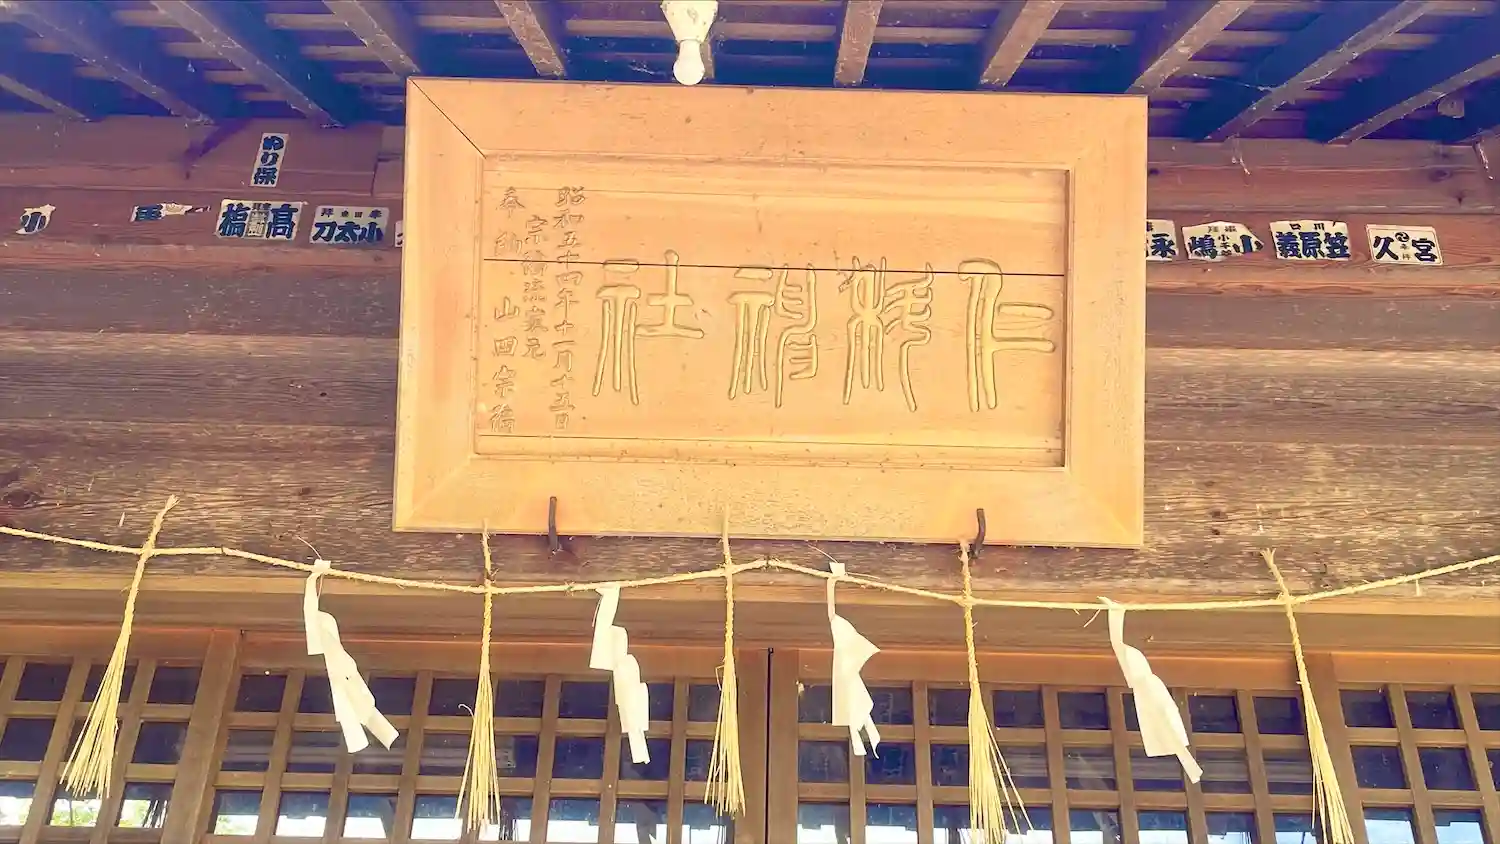 仁科神社
昭和五十四年十一月十五日
宗徧流家元
奉納 山田宗徧
宮久
川口
笠原義
小嶋
永
小太刀
髙橋
ぬり保
小